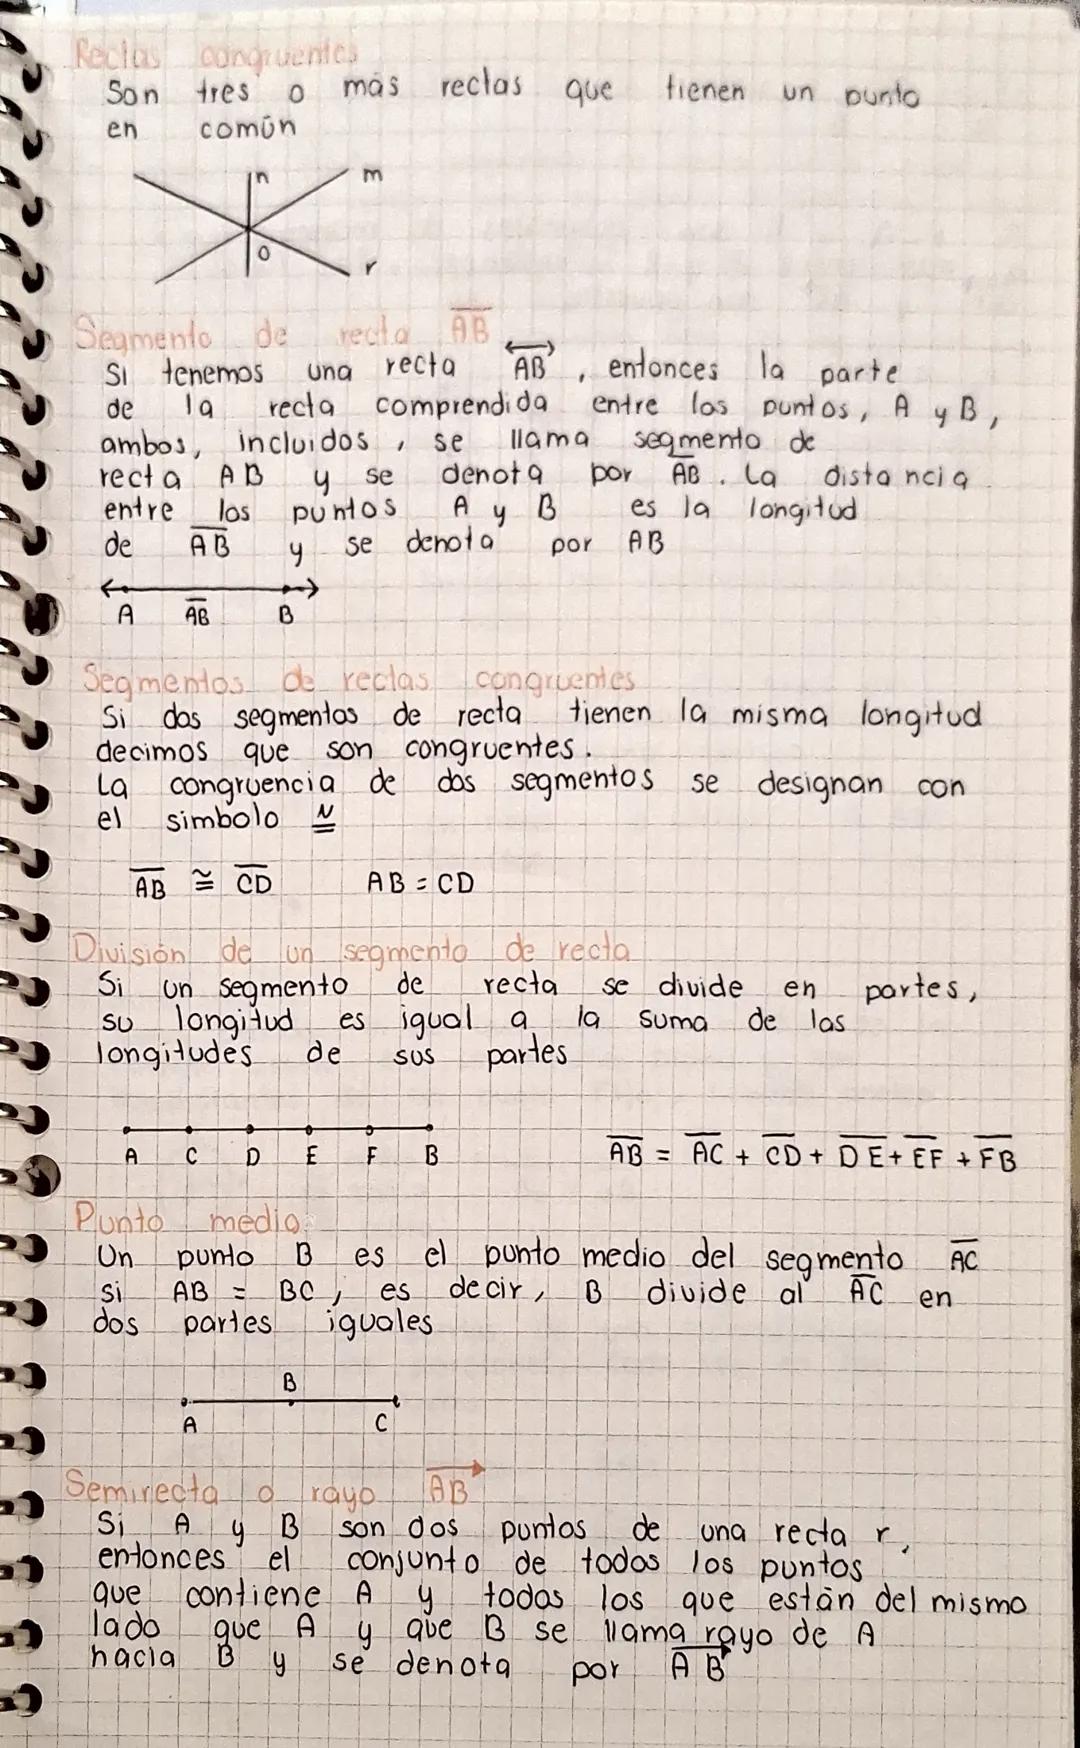 Rectas congruentes
Son tres o más rectas que tienen un punto
en común
n m
o
r
Segmento de recta A̅B̅
Si tenemos una recta AB, entonces la parte
de la recta comprendida entre los puntos, A y B,
ambos, incluidos, se llama segmento de
recta AB y se denota por A̅B̅. La distancia
entre los puntos A y B es la longitud
de A̅B̅ y se denota por AB
A A̅B̅ B
Segmentos de rectas congruentes
Si dos segmentos de recta tienen la misma longitud
decimos que son congruentes.
La congruencia de dos segmentos se designan con
el simbolo ≅
A̅B̅ ≅ C̅D̅ AB = CD
División de un segmento de recta
Si un segmento de recta se divide en partes,
su longitud es igual a la suma de las
longitudes de sus partes
A C D E F B A̅B̅ = A̅C̅ + C̅D̅ + D̅E̅ + E̅F̅ + F̅B̅
Punto medio
Un punto B es el punto medio del segmento A̅C̅
si AB = BC, es decir, B divide al A̅C̅ en
dos partes iguales
B
A C
Semirecta o rayo A⃗B⃗
Si A y B son dos puntos de una recta r,
entonces el conjunto de todos los puntos
que contiene A y todos los que están del mismo
lado que A y que B se llama rayo de A
hacia B y se denota por A⃗B⃗